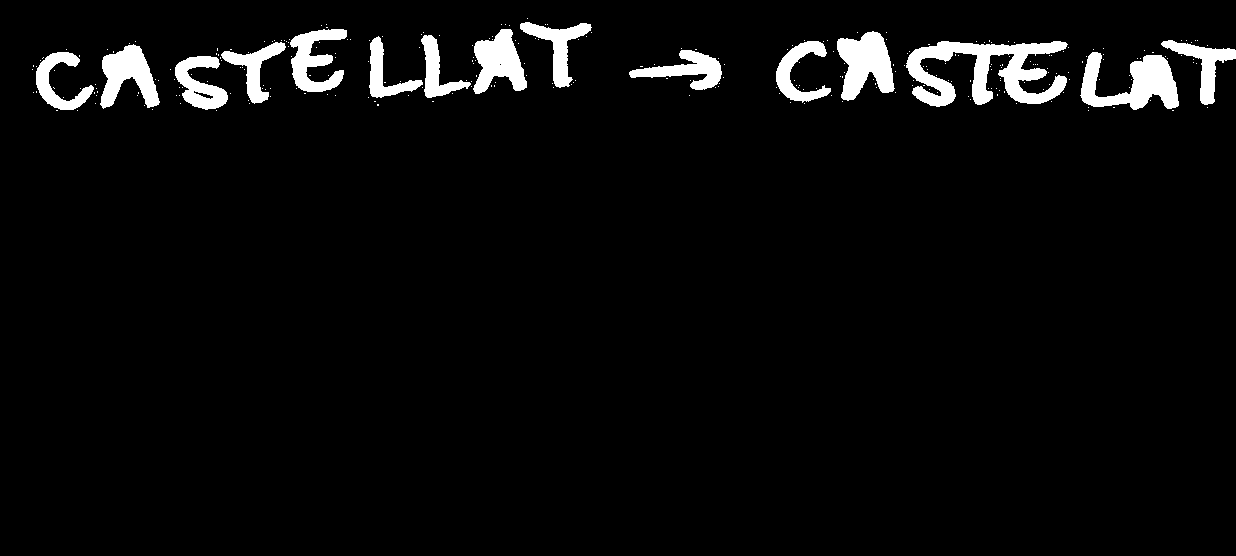 CASTELLAT → CASTELAT